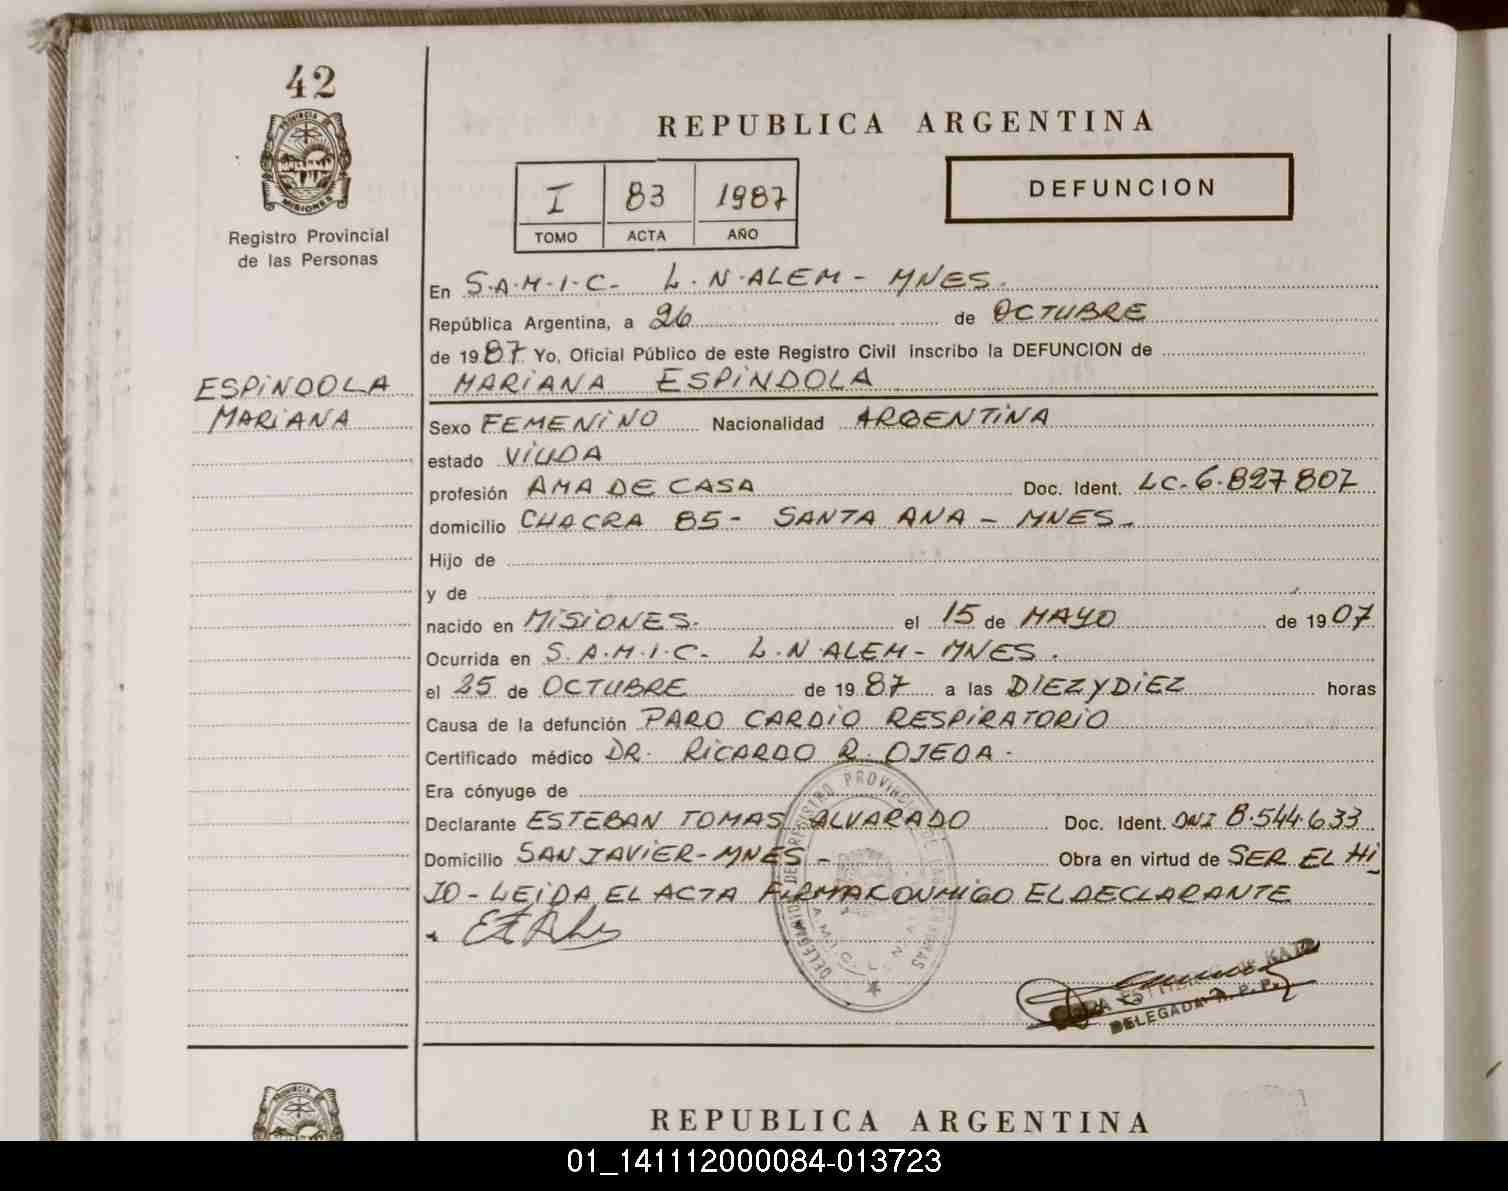 42
PROVINCIA DE
MISIONES
Registro Provincial
de las Personas
ESPINDOLA
MARIANA
REPUBLICA ARGENTINA
I 83 1987
TOMO ACTA AÑO
DEFUNCION
En S.A.M.I.C. L.N.ALEM - MNES.
República Argentina, a 26 de OCTUBRE
de 1987 Yo, Oficial Público de este Registro Civil inscribo la DEFUNCION de
MARIANA ESPINDOLA
Sexo FEMENINO Nacionalidad ARGENTINA
estado VIUDA
profesión AMA DE CASA Doc. Ident. LC-6.827807
domicilio CHACRA 85- SANTA ANA - MNES-
Hijo de
y de
nacido en MISIONES. el 15 de MAYO de 1907
Ocurrida en S.A.M.I.C. L.N ALEM - MNES.
el 25 de OCTUBRE de 1987 a las DIEZ Y DIEZ horas
Causa de la defunción PARO CARDIO RESPIRATORIO
Certificado médico DR. RICARDO R. OJEDA.
Era cónyuge de
Declarante ESTEBAN TOMAS ALVARADO Doc. Ident. DNI 8.544.633
Domicilio SAN JAVIER-MNES- Obra en virtud de SER EL HI
JO - LEIDA EL ACTA FIRMA CONMIGO EL DECLARANTE
DELEGADA R. P. P.
REPUBLICA ARGENTINA
01_141112000084-013723